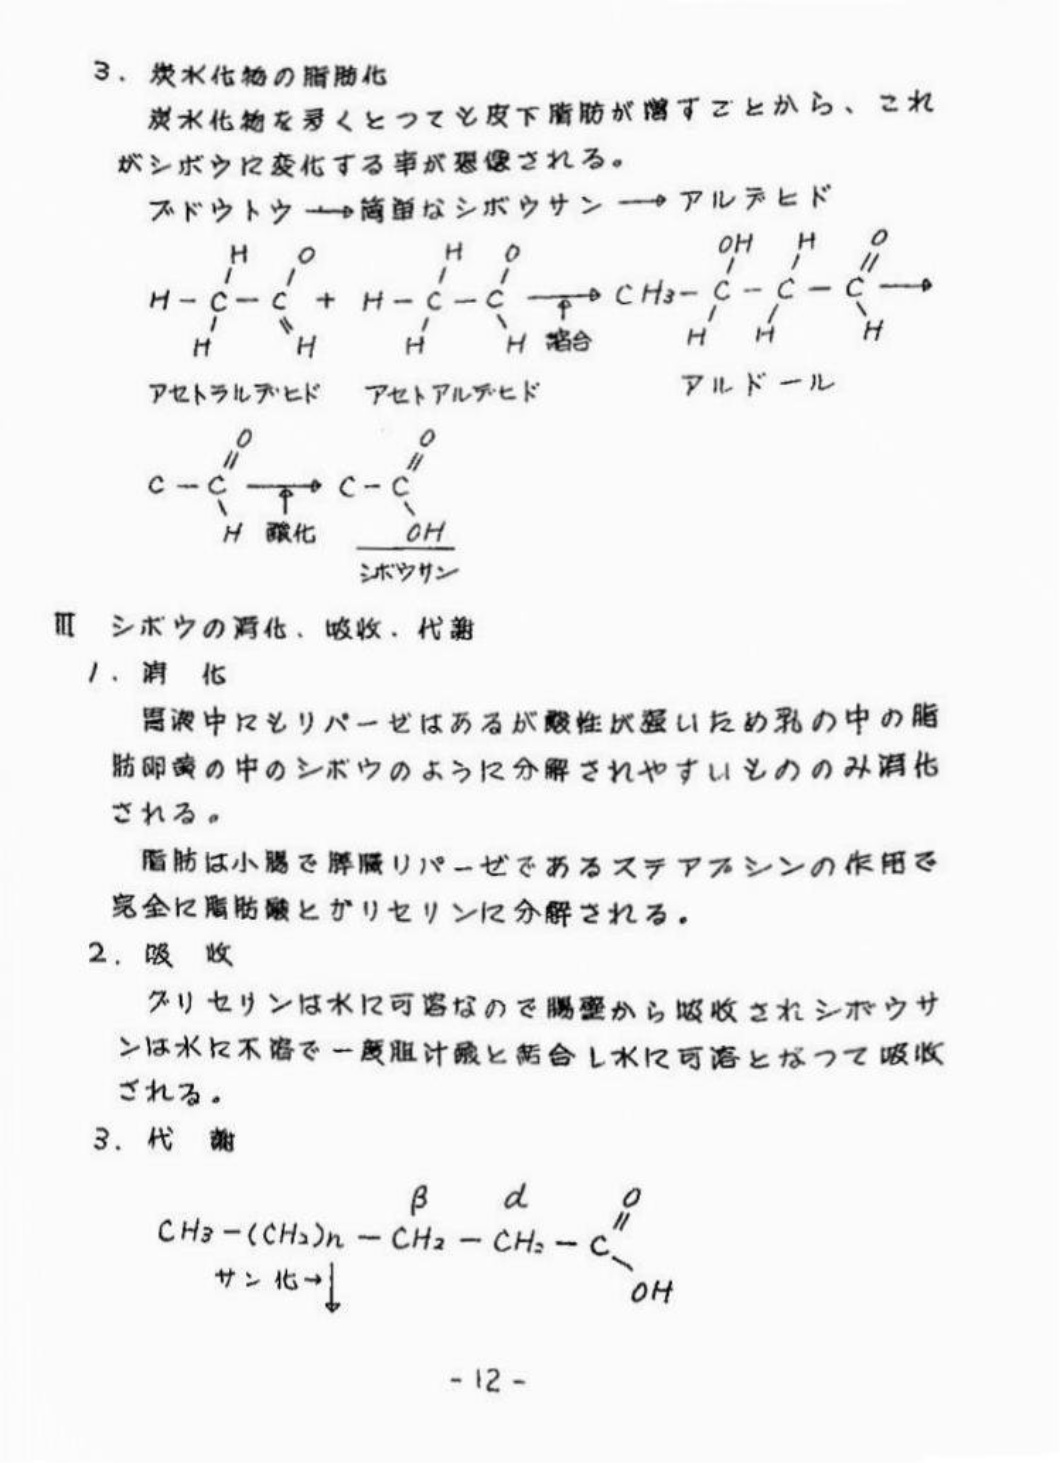 3. 炭水化物の脂肪化
炭水化物を多くとつても皮下脂肪が増すことから、これ
がシボウに変化する事が想像される。
ブドウトウ→簡単なシボウサン→アルデヒド
H O H O OH H O
H-C-C + H-C-C → CH3-C-C-C →
H H H H 縮合 H H H
アセトラルデヒド アセトアルデヒド アルドール
O O
C-C → C-C
H 酸化 OH
シボウサン
III シボウの消化、吸收、代謝
1. 消 化
胃液中にもリパーゼはあるが酸性が强いため乳の中の脂
肪卵黄の中のシボウのように分解されやすいもののみ消化
される。
脂肪は小腸で膵臓リパーゼであるステアプシンの作用で
完全に脂肪酸とグリセリンに分解される。
2. 吸 收
グリセリンは水に可溶なので腸壁から吸收されシボウサ
ンは水に不溶で一度胆汁酸と結合し水に可溶となつて吸收
される。
3. 代 謝
β α O
CH3-(CH2)n-CH2-CH2-C
サン化→↓ OH
-12-